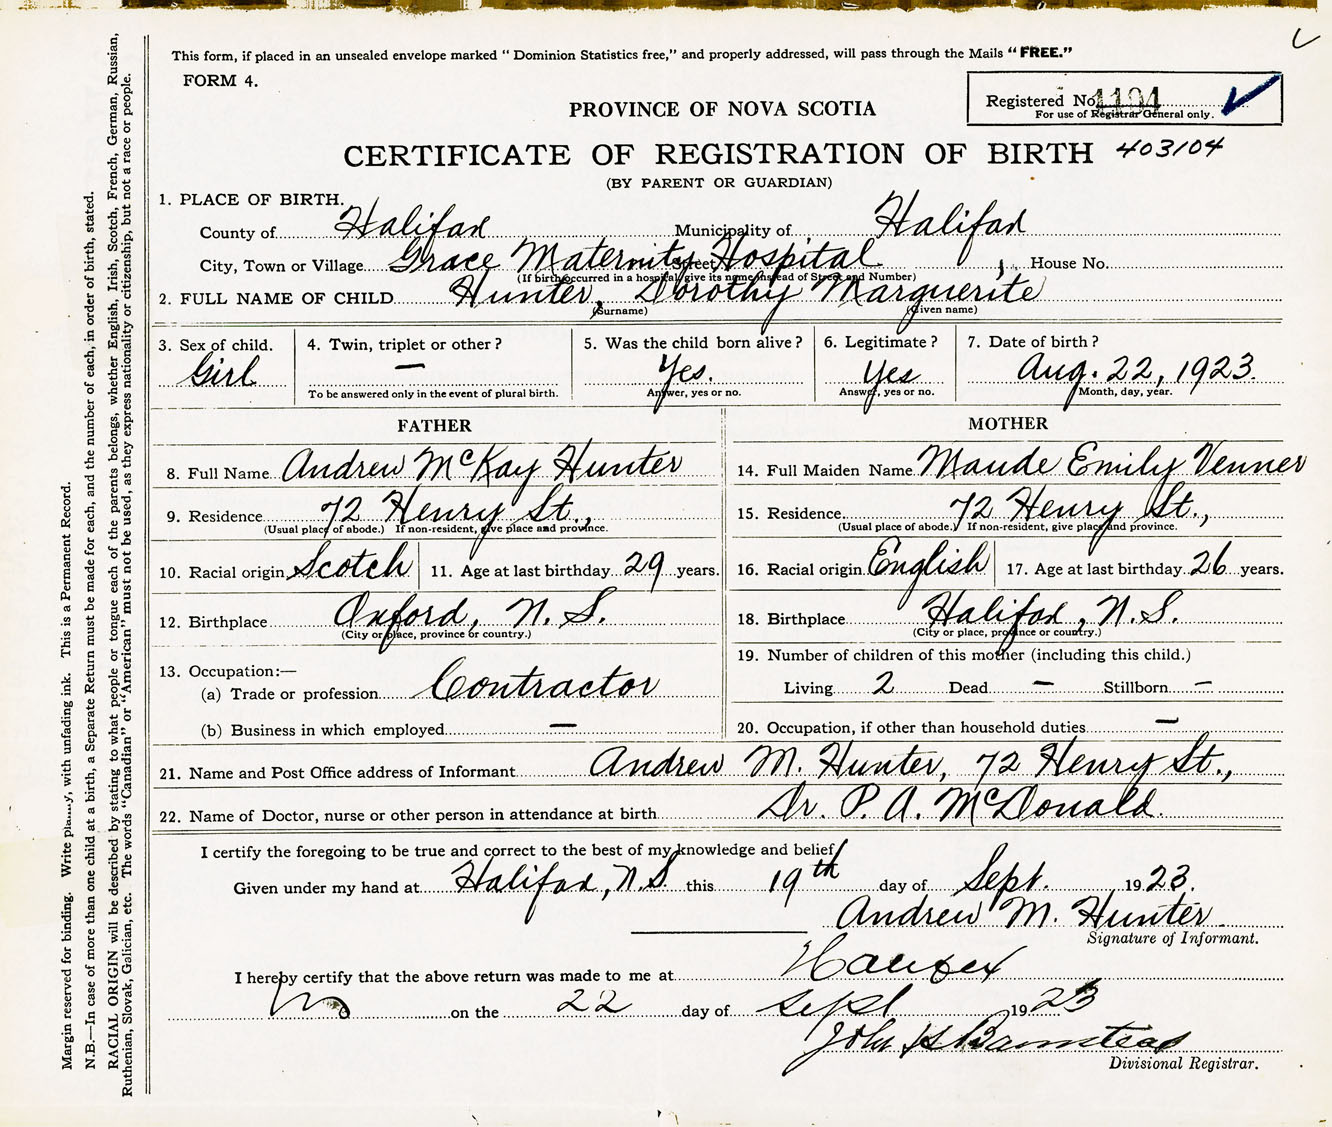 This form, if placed in an unsealed envelope marked “ Dominion Statistics free,” and properly addressed, will pass through the Mails “ FREE.”
FORM 4.
PROVINCE OF NOVA SCOTIA
Registered No. 1194
For use of Registrar General only.
CERTIFICATE OF REGISTRATION OF BIRTH 403104
(BY PARENT OR GUARDIAN)
1. PLACE OF BIRTH.
County of Halifax Municipality of Halifax
City, Town or Village Grace Maternity Hospital Street House No.
(If birth occurred in a hospital give its name instead of Street and Number)
2. FULL NAME OF CHILD Hunter, Dorothy Marguerite
(Surname) (Given name)
3. Sex of child. 4. Twin, triplet or other ? 5. Was the child born alive ? 6. Legitimate ? 7. Date of birth ?
Girl — Yes. Yes Aug. 22, 1923.
To be answered only in the event of plural birth. Answer, yes or no. Answer, yes or no. Month, day, year.
FATHER
8. Full Name Andrew McKay Hunter
9. Residence 72 Henry St.,
(Usual place of abode.) If non-resident, give place and province.
10. Racial origin Scotch 11. Age at last birthday 29 years.
12. Birthplace Oxford, N. S.
(City or place, province or country.)
13. Occupation:—
(a) Trade or profession Contractor
(b) Business in which employed —
MOTHER
14. Full Maiden Name Maude Emily Venner
15. Residence 72 Henry St.,
(Usual place of abode.) If non-resident, give place and province.
16. Racial origin English 17. Age at last birthday 26 years.
18. Birthplace Halifax, N.S.
(City or place, province or country.)
19. Number of children of this mother (including this child.)
Living 2 Dead — Stillborn —
20. Occupation, if other than household duties —
21. Name and Post Office address of Informant Andrew M. Hunter, 72 Henry St.,
22. Name of Doctor, nurse or other person in attendance at birth Dr. P. A. McDonald.
I certify the foregoing to be true and correct to the best of my knowledge and belief
Given under my hand at Halifax, N.S. this 19th day of Sept. 1923.
Andrew M. Hunter
Signature of Informant.
I hereby certify that the above return was made to me at Halifax
on the 22 day of Sept 1923
John
Divisional Registrar.
Margin reserved for binding. Write with unfading ink. This is a Permanent Record.
N.B.—In case of more than one child at a birth, a Separate Return must be made for each, and the number of each, in order of birth, stated.
RACIAL ORIGIN will be described by stating to what people or tongue each of the parents belongs, whether English, Irish, Scotch, French, German, Russian,
Ruthenian, Slovak, Galician, etc. The words “Canadian” or “American” must not be used, as they express nationality or citizenship, but not a race or people.